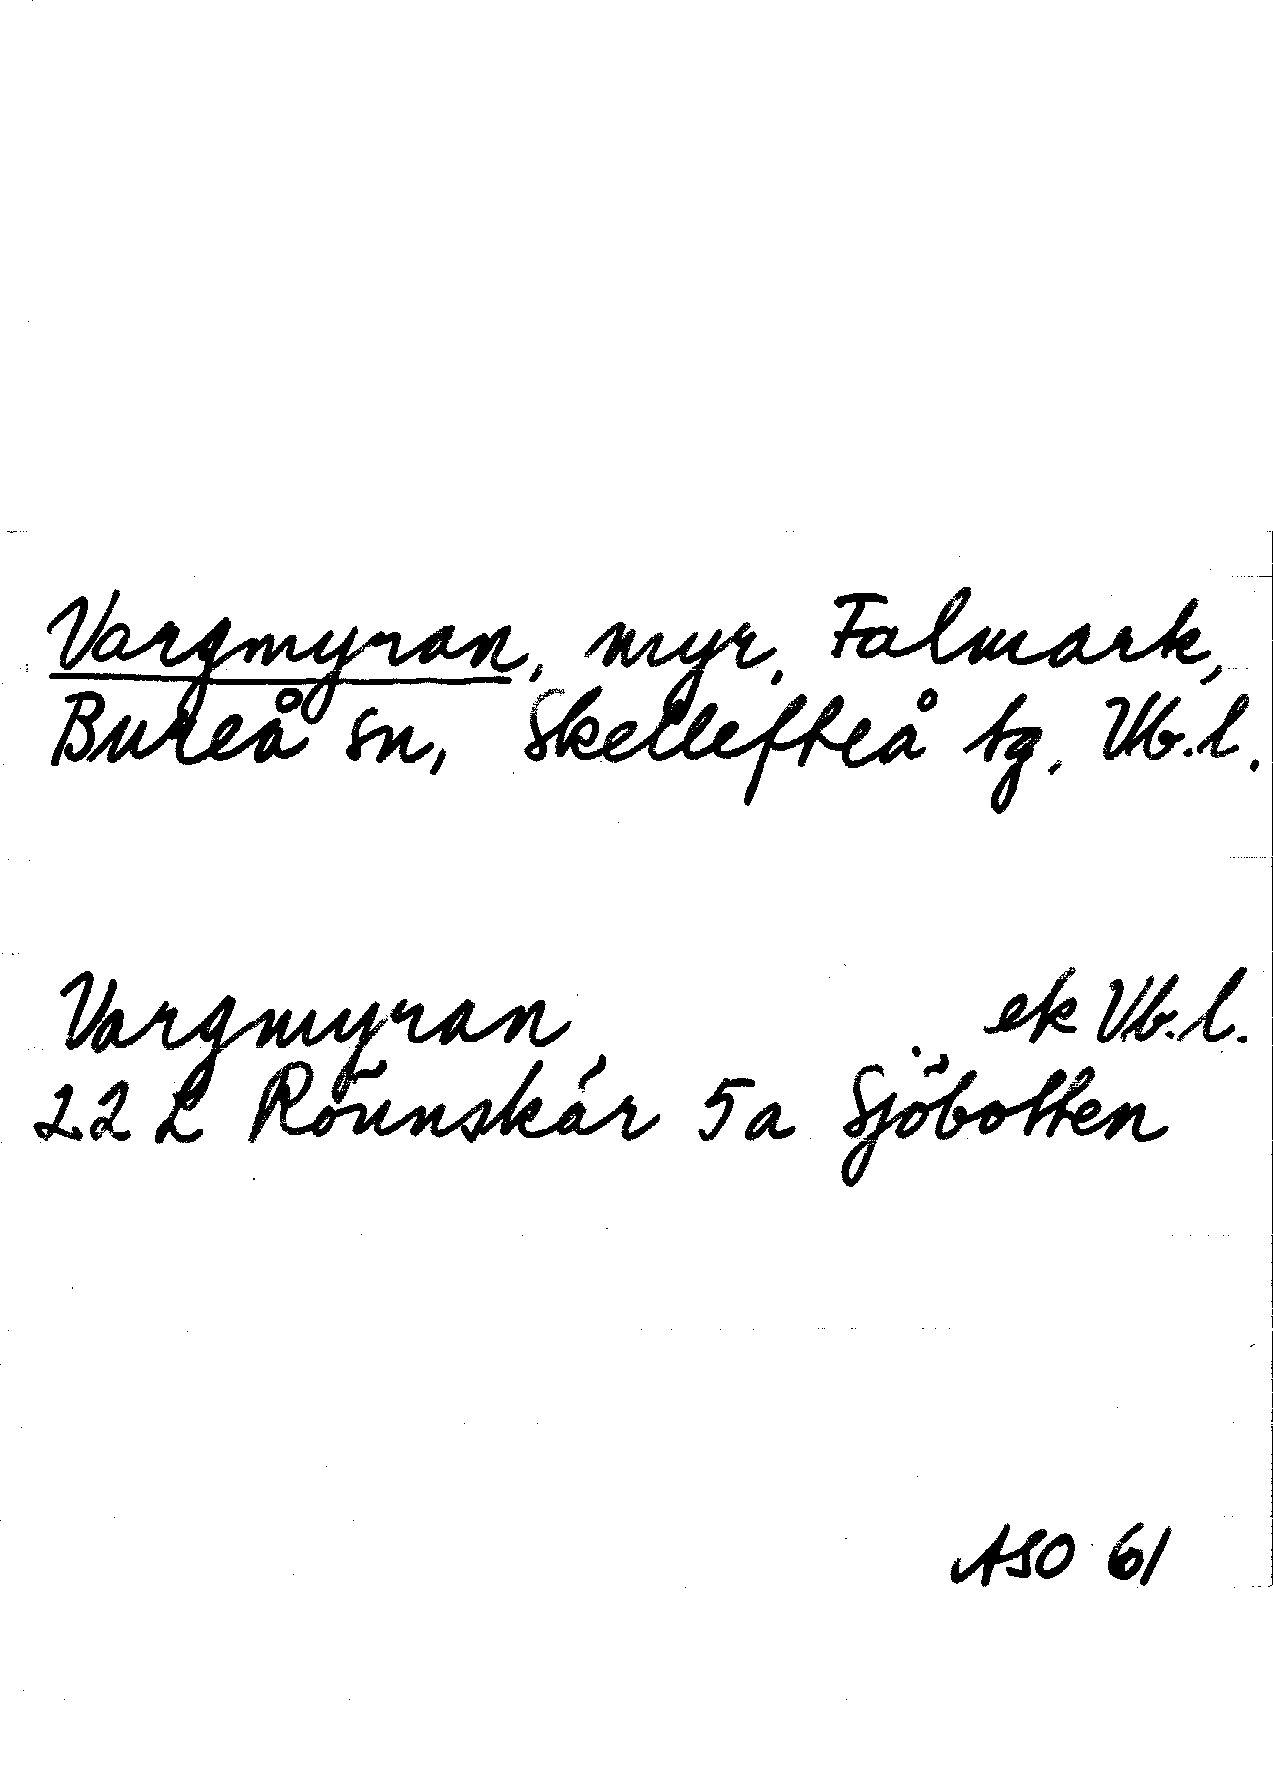 Vargmyran, myr, Falmark,
Bureå sn, Skellefteå tg, Vb.l.
Vargmyran ek Vb.l.
22 L Rönnskär 5a Sjöbotten
ASO 61